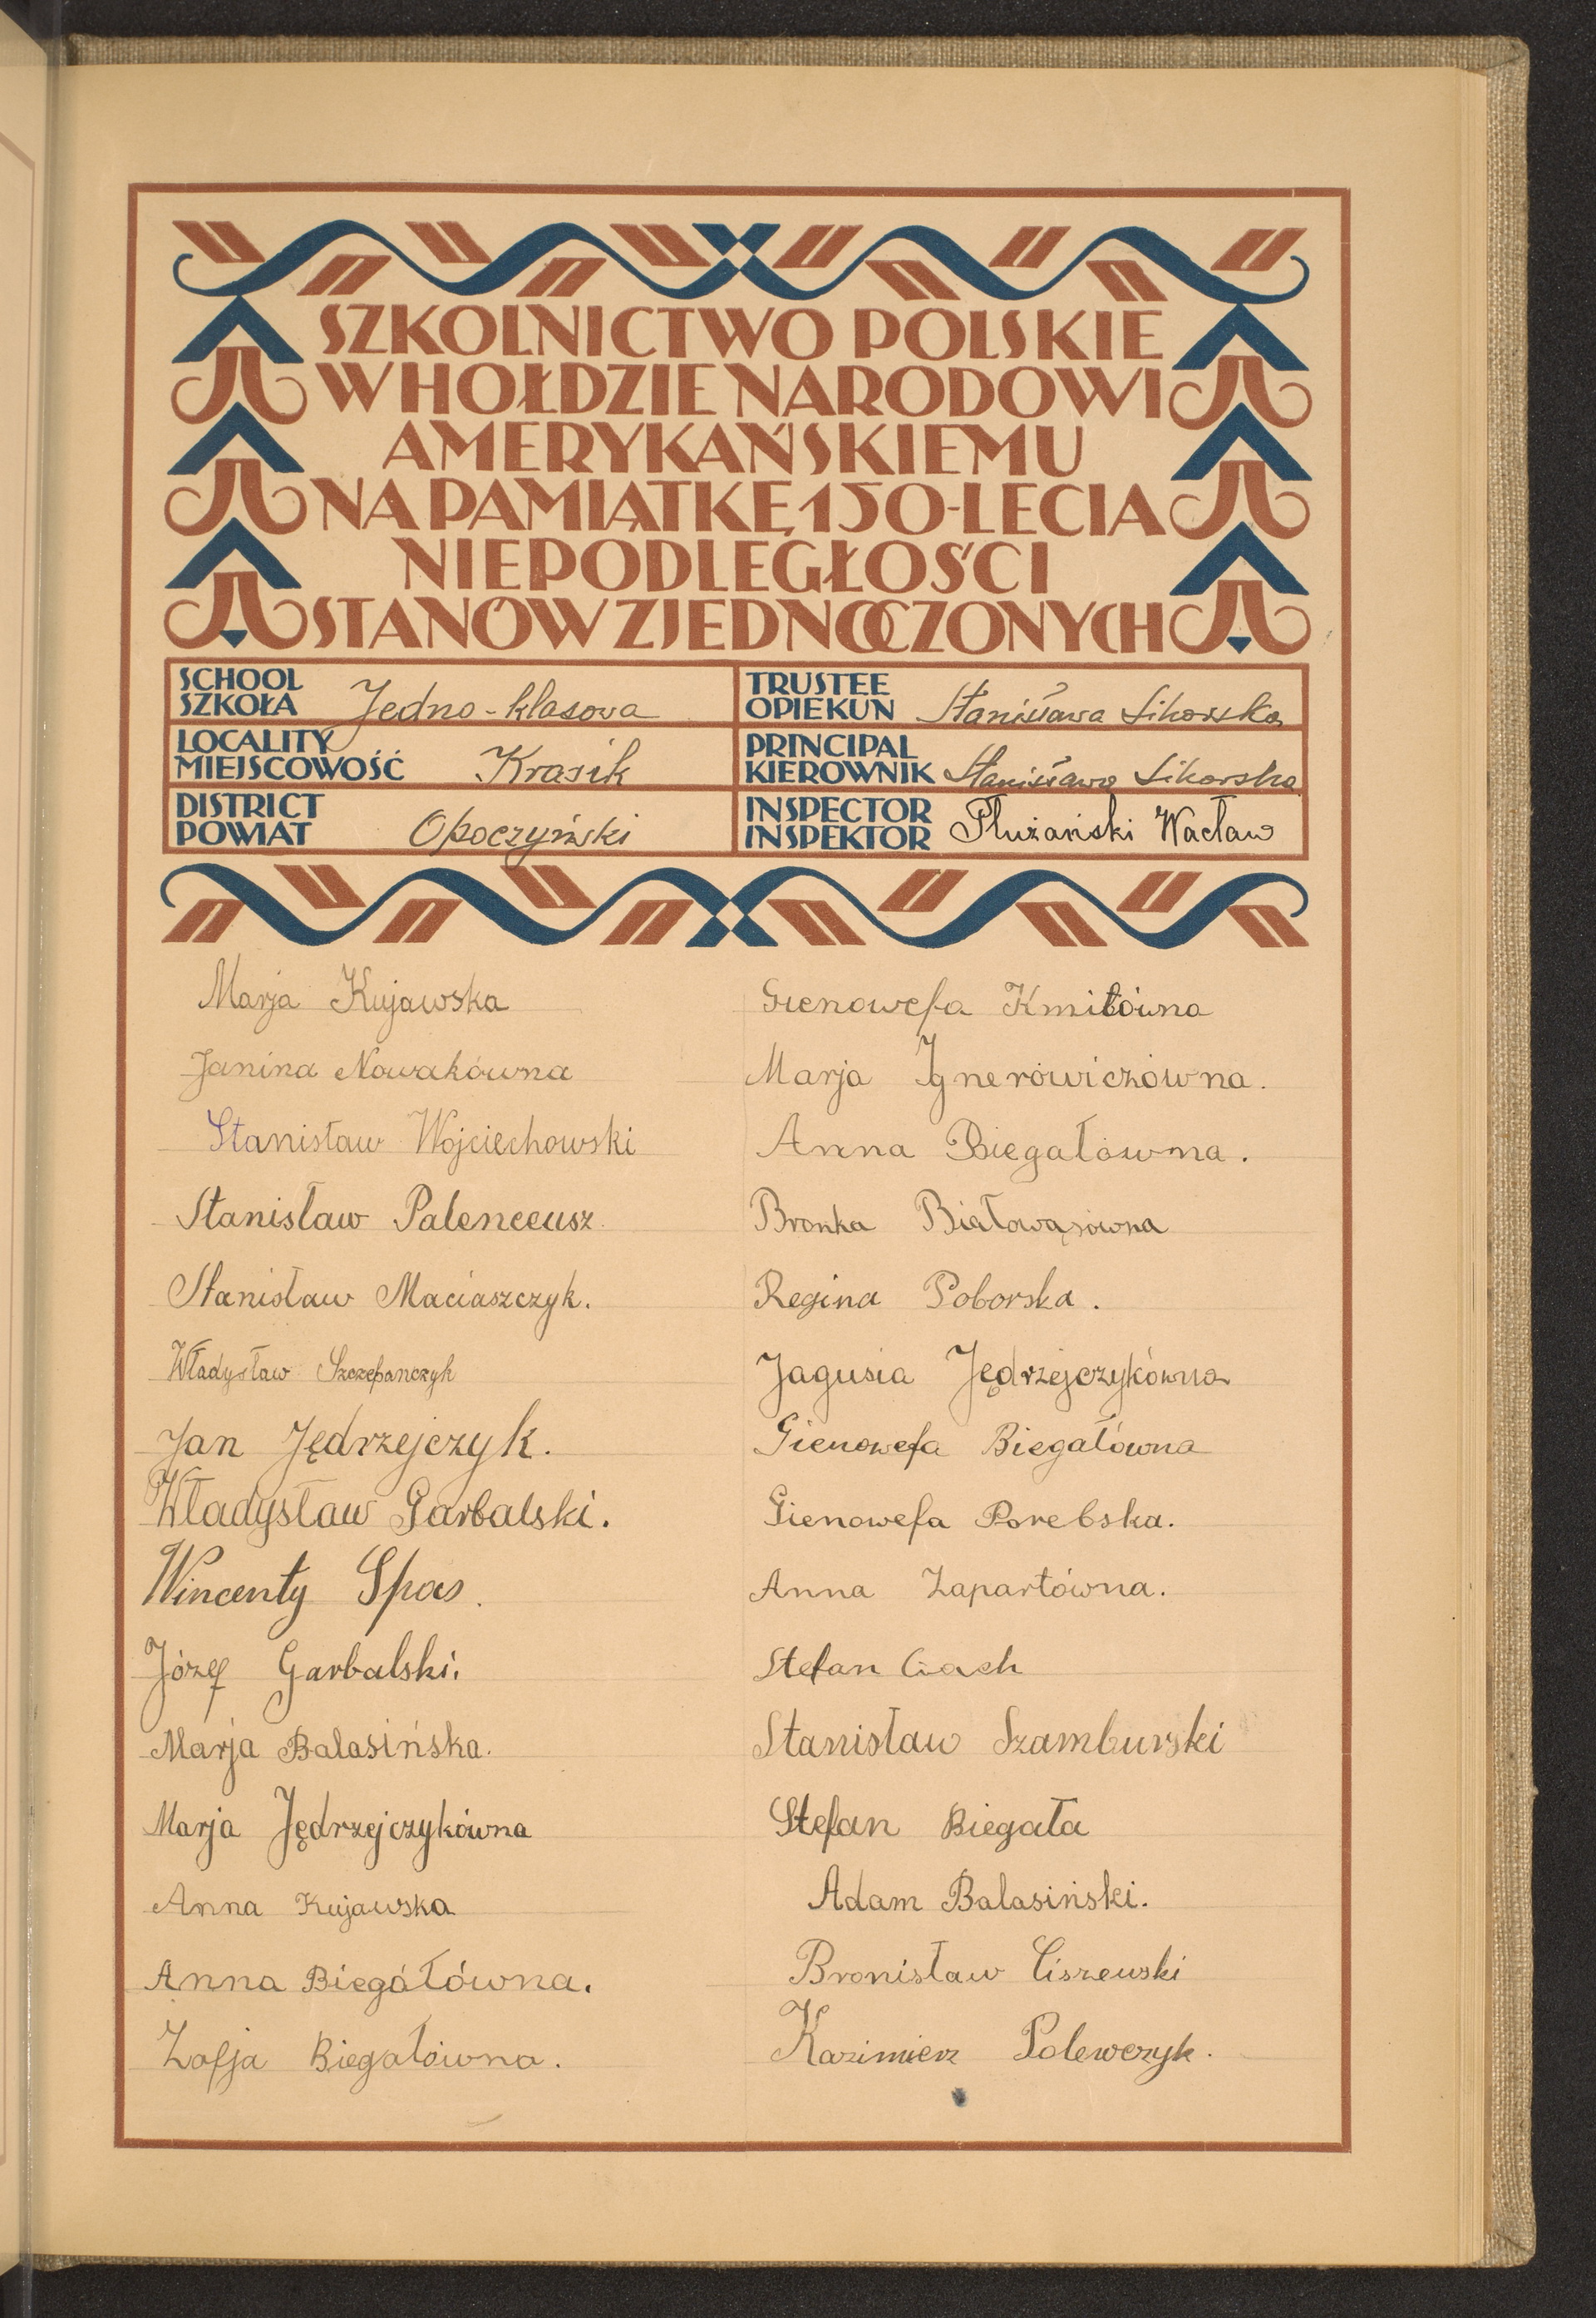 SZKOLNICTWO POLSKIE
W HOŁDZIE NARODOWI
AMERYKAŃSKIEMU
NA PAMIĄTKĘ 150-LECIA
NIEPODLEGŁOŚCI
STANÓW ZJEDNOCZONYCH
SCHOOL
SZKOŁA Jedno-klasowa
LOCALITY
MIEJSCOWOŚĆ Krasik
DISTRICT
POWIAT Opoczyński
TRUSTEE
OPIEKUN Stanisława Sikorska
PRINCIPAL
KIEROWNIK Stanisława Sikorska
INSPECTOR
INSPEKTOR Płużański Wacław
Marja Kujawska
Janina Nowakówna
Stanisław Wojciechowski
Stanisław Palenceusz
Stanisław Maciaszczyk.
Władysław Szczepanczyk
Jan Jędrzejczyk.
Władysław Garbalski.
Wincenty Spas.
Józef Garbalski.
Marja Balasińska.
Marja Jędrzejczykówna
Anna Kujawska
Anna Biegałówna.
Zofja Biegałówna.
Gienowefa Kmitówna
Marja Ignerowiczówna.
Anna Biegałówna.
Bronka Białowąsówna
Regina Poborska.
Jagusia Jędrzejczykówna
Gienowefa Biegałówna
Gienowefa Porebska.
Anna Zapartówna.
Stefan Gach
Stanisław Szamburski
Stefan Biegała
Adam Balasiński.
Bronisław Ciszewski
Kazimierz Polewczyk.